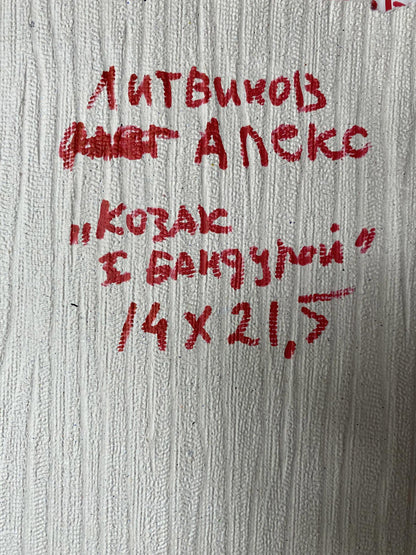 Литвинов
Олег Алекс
"Козак
з бандурой"
14 х 21,5